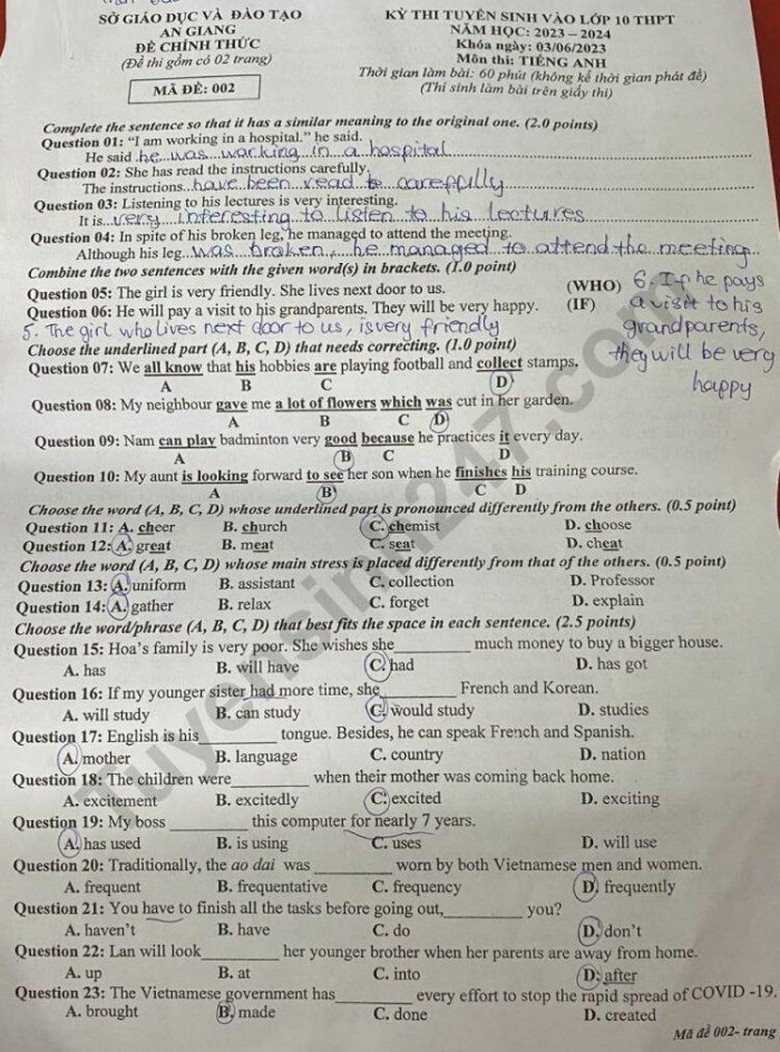 SỞ GIÁO DỤC VÀ ĐÀO TẠO
AN GIANG
ĐỀ CHÍNH THỨC
(Đề thi gồm có 02 trang)
MÃ ĐỀ: 002
KỲ THI TUYỂN SINH VÀO LỚP 10 THPT
NĂM HỌC: 2023 – 2024
Khóa ngày: 03/06/2023
Môn thi: TIẾNG ANH
Thời gian làm bài: 60 phút (không kể thời gian phát đề)
(Thí sinh làm bài trên giấy thi)
Complete the sentence so that it has a similar meaning to the original one. (2.0 points)
Question 01: “I am working in a hospital.” he said.
He said he was working in a hospital
Question 02: She has read the instructions carefully.
The instructions have been read carefully
Question 03: Listening to his lectures is very interesting.
It is very interesting to listen to his lectures
Question 04: In spite of his broken leg, he managed to attend the meeting.
Although his leg was broken, he managed to attend the meeting
Combine the two sentences with the given word(s) in brackets. (1.0 point)
Question 05: The girl is very friendly. She lives next door to us. (WHO)
Question 06: He will pay a visit to his grandparents. They will be very happy. (IF)
6. If he pays
a visit to his
grandparents,
they will be very
happy
5. The girl who lives next door to us, is very friendly
Choose the underlined part (A, B, C, D) that needs correcting. (1.0 point)
Question 07: We all know that his hobbies are playing football and collect stamps.
A B C D
Question 08: My neighbour gave me a lot of flowers which was cut in her garden.
A B C D
Question 09: Nam can play badminton very good because he practices it every day.
A B C D
Question 10: My aunt is looking forward to see her son when he finishes his training course.
A B C D
Choose the word (A, B, C, D) whose underlined part is pronounced differently from the others. (0.5 point)
Question 11: A. cheer B. church C. chemist D. choose
Question 12: A. great B. meat C. seat D. cheat
Choose the word (A, B, C, D) whose main stress is placed differently from that of the others. (0.5 point)
Question 13: A. uniform B. assistant C. collection D. Professor
Question 14: A. gather B. relax C. forget D. explain
Choose the word/phrase (A, B, C, D) that best fits the space in each sentence. (2.5 points)
Question 15: Hoa’s family is very poor. She wishes she_________ much money to buy a bigger house.
A. has B. will have C. had D. has got
Question 16: If my younger sister had more time, she_________ French and Korean.
A. will study B. can study C. would study D. studies
Question 17: English is his_________ tongue. Besides, he can speak French and Spanish.
A. mother B. language C. country D. nation
Question 18: The children were_________ when their mother was coming back home.
A. excitement B. excitedly C. excited D. exciting
Question 19: My boss _________ this computer for nearly 7 years.
A. has used B. is using C. uses D. will use
Question 20: Traditionally, the ao dai was _________ worn by both Vietnamese men and women.
A. frequent B. frequentative C. frequency D. frequently
Question 21: You have to finish all the tasks before going out,_________ you?
A. haven’t B. have C. do D. don’t
Question 22: Lan will look_________ her younger brother when her parents are away from home.
A. up B. at C. into D. after
Question 23: The Vietnamese government has_________ every effort to stop the rapid spread of COVID -19.
A. brought B. made C. done D. created
Mã đề 002- trang
Tuyensinh247.com